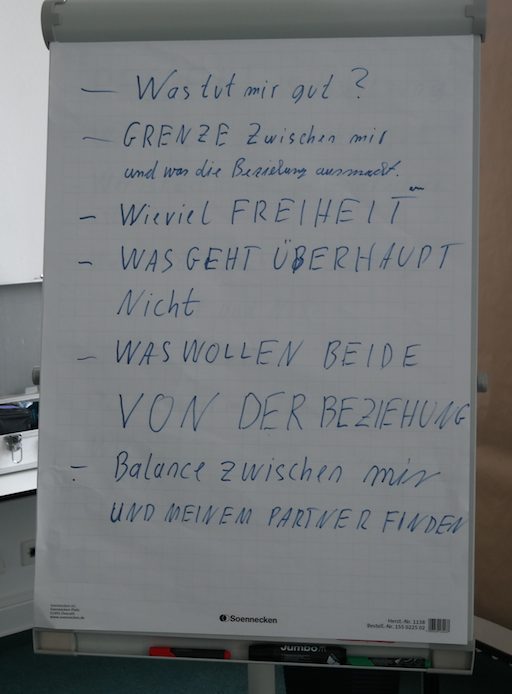 — Was tut mir gut ?
— GRENZE zwischen mir
und was die Beziehung ausmacht.
- Wieviel FREIHEIT
- WAS GEHT ÜBERHAUPT
Nicht
- WAS WOLLEN BEIDE
VON DER BEZIEHUNG
- Balance zwischen mir
UND MEINEM PARTNER FINDEN
Soennecken
Herst.-Nr. 1138
Bestell.-Nr. 155 0225 02
www.soennecken.de
Jumbo